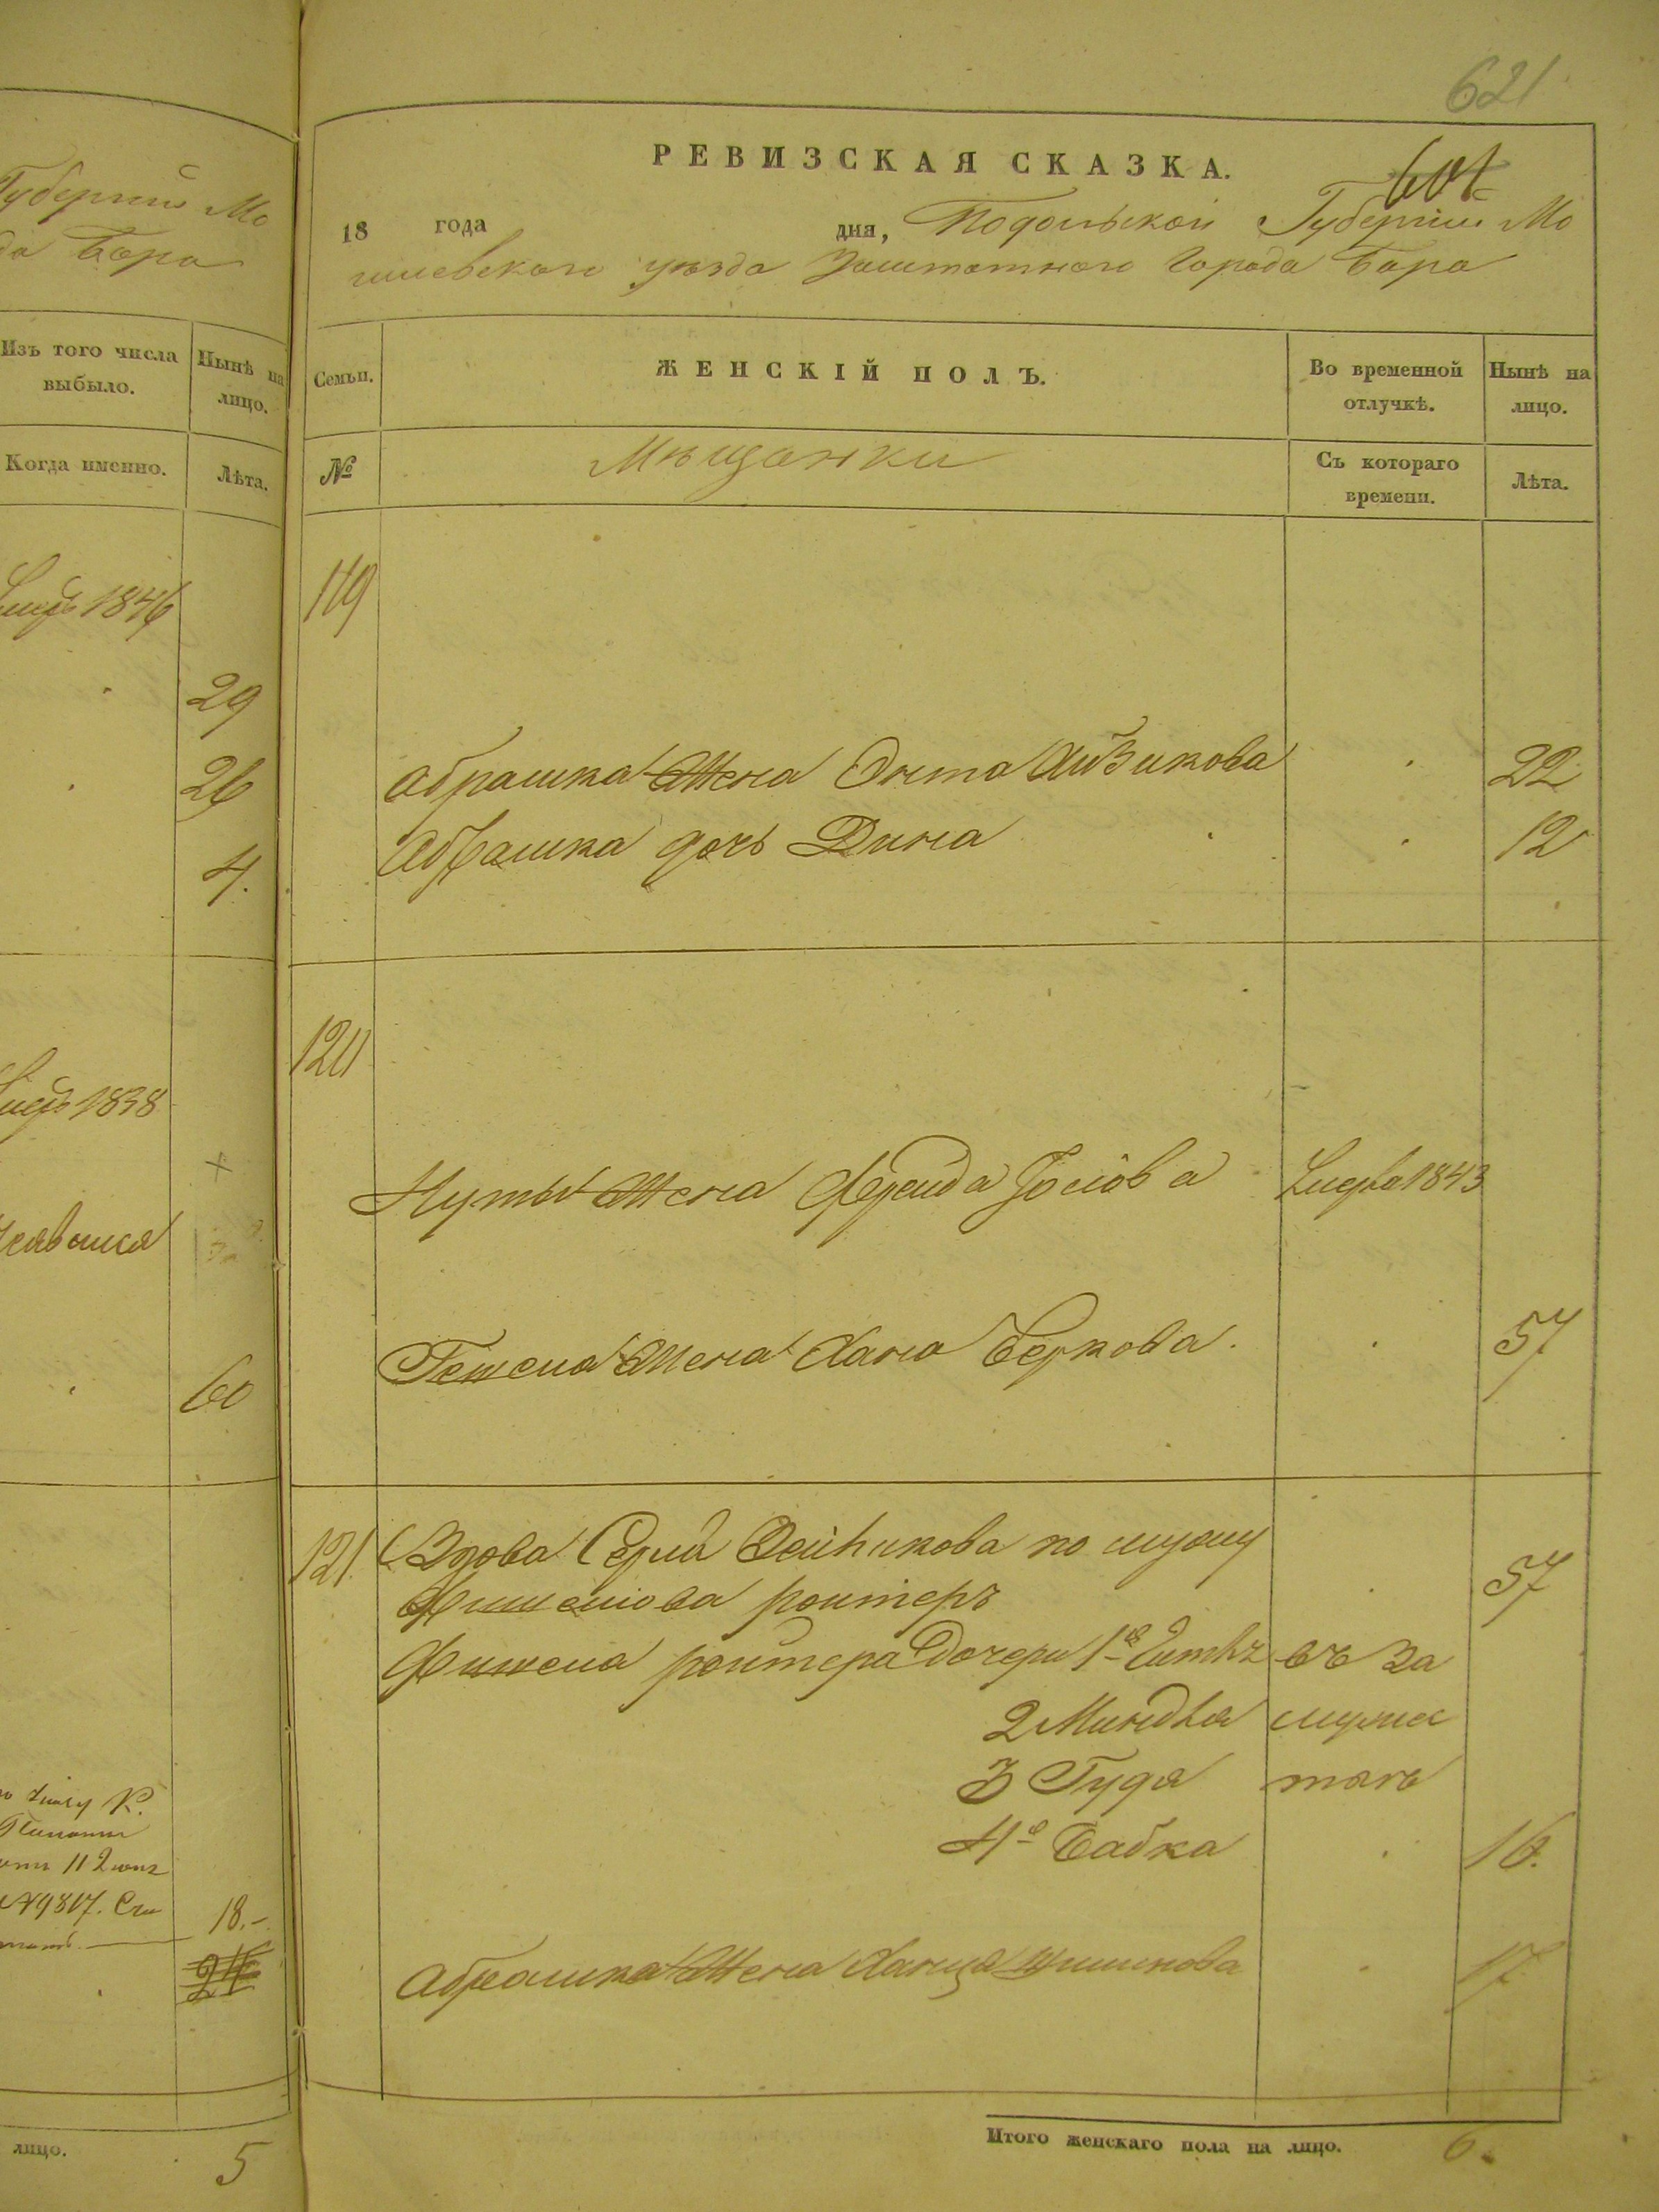 Губерніи Мо
да Бара
Изъ того числа выбыло.
Нынѣ на лицо.
Когда именно.
Лѣта.
1846
29
26
4.
1838
60
11
18.-
24
лицо.
5
621
РЕВИЗСКАЯ СКАЗКА.
18 года дня, Подольской Губерніи Мо
гилевскаго уѣзда Заштатнаго Города Бара
Семьи.
ЖЕНСКІЙ ПОЛЪ.
Во временной отлучкѣ.
Нынѣ на лицо.
№
Мѣщанки
Съ котораго времени.
Лѣта.
119
Абрашка Жена Энта Айзикова 22
Абрашка дочь Дина 12
120
Нуты Жена Фрейда 1843
Гешеля Жена Хана Беркова. 57
121. Вдова по мужу 57
Фишелова ройтеръ
Фишеля ройтера Дочери 1я въ за
2 Миндля муже
3 Гудя
4я Бабка 16.
Абрашка Жена Ханця 17
Итого женскаго пола на лицо. 6.